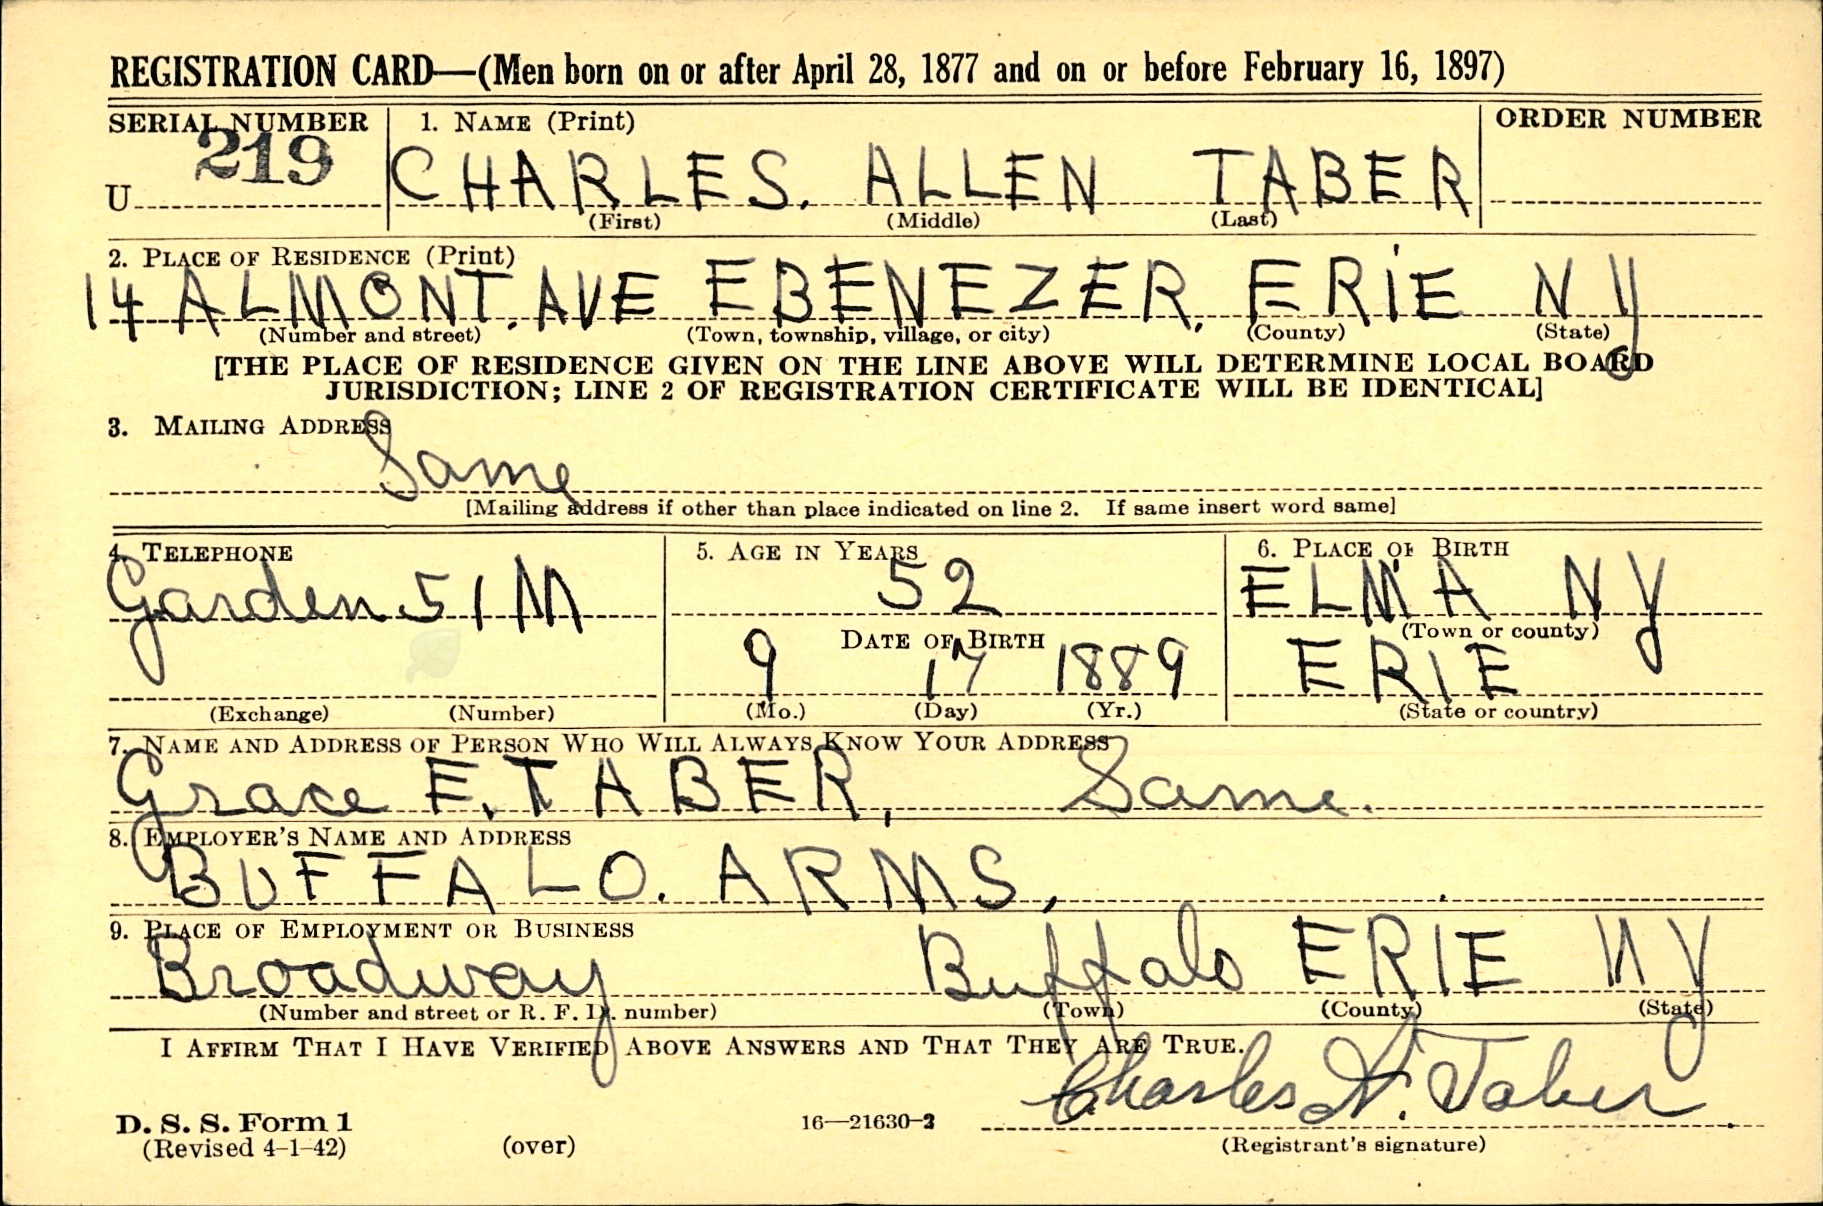 REGISTRATION CARD—(Men born on or after April 28, 1877 and on or before February 16, 1897)
SERIAL NUMBER 1. NAME (Print) ORDER NUMBER
U 219 CHARLES. ALLEN TABER
(First) (Middle) (Last)
2. PLACE OF RESIDENCE (Print)
14 ALMONT. AVE EBENEZER. ERIE NY
(Number and street) (Town, township, village, or city) (County) (State)
[THE PLACE OF RESIDENCE GIVEN ON THE LINE ABOVE WILL DETERMINE LOCAL BOARD
JURISDICTION; LINE 2 OF REGISTRATION CERTIFICATE WILL BE IDENTICAL]
3. MAILING ADDRESS
Same
[Mailing address if other than place indicated on line 2. If same insert word same]
4. TELEPHONE 5. AGE IN YEARS 6. PLACE OF BIRTH
Garden 51M 52 ELMA NY
DATE OF BIRTH (Town or county)
9 17 1889 ERIE
(Exchange) (Number) (Mo.) (Day) (Yr.) (State or country)
7. NAME AND ADDRESS OF PERSON WHO WILL ALWAYS KNOW YOUR ADDRESS
Grace E. TABER, Same.
8. EMPLOYER'S NAME AND ADDRESS
BUFFALO. ARMS,
9. PLACE OF EMPLOYMENT OR BUSINESS
Broadway Buffalo ERIE NY
(Number and street or R. F. D. number) (Town) (County) (State)
I AFFIRM THAT I HAVE VERIFIED ABOVE ANSWERS AND THAT THEY ARE TRUE.
Charles A. Taber
D. S. S. Form 1 16—21630-2
(Revised 4-1-42) (over) (Registrant's signature)